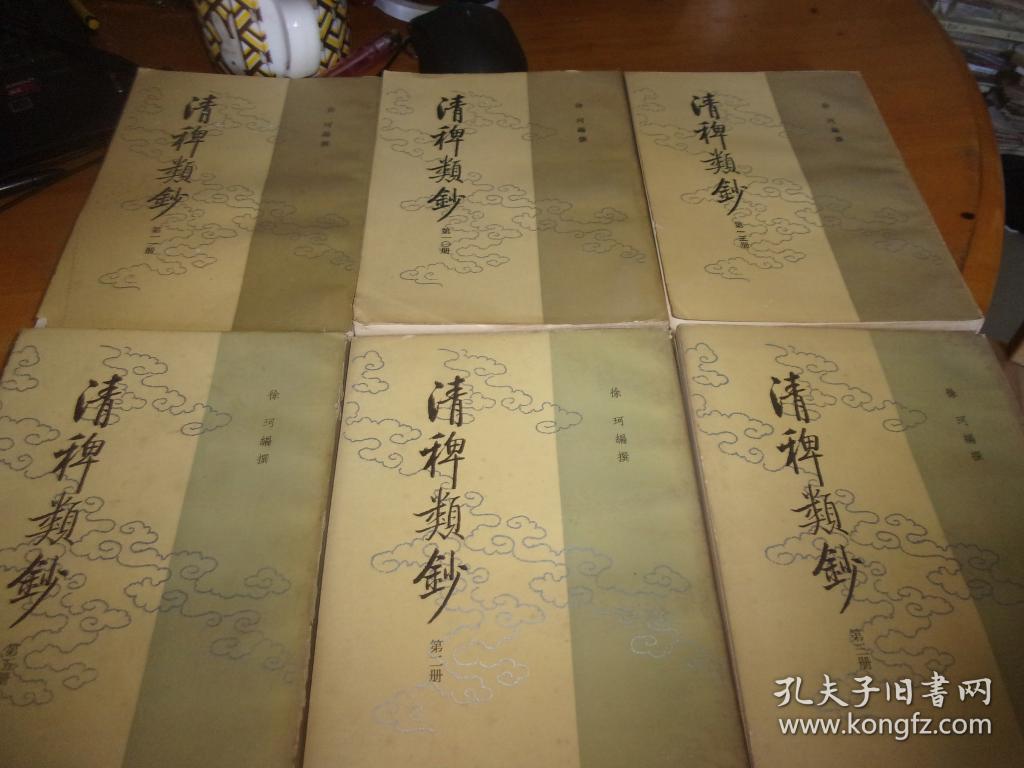 清稗類鈔
徐珂編撰
第一册
清稗類鈔
徐珂編撰
清稗類鈔
徐珂編撰
清稗類鈔
徐珂編撰
第五册
清稗類鈔
徐珂編撰
第二册
清稗類鈔
徐珂編撰
孔夫子旧書网
www.kongfz.com